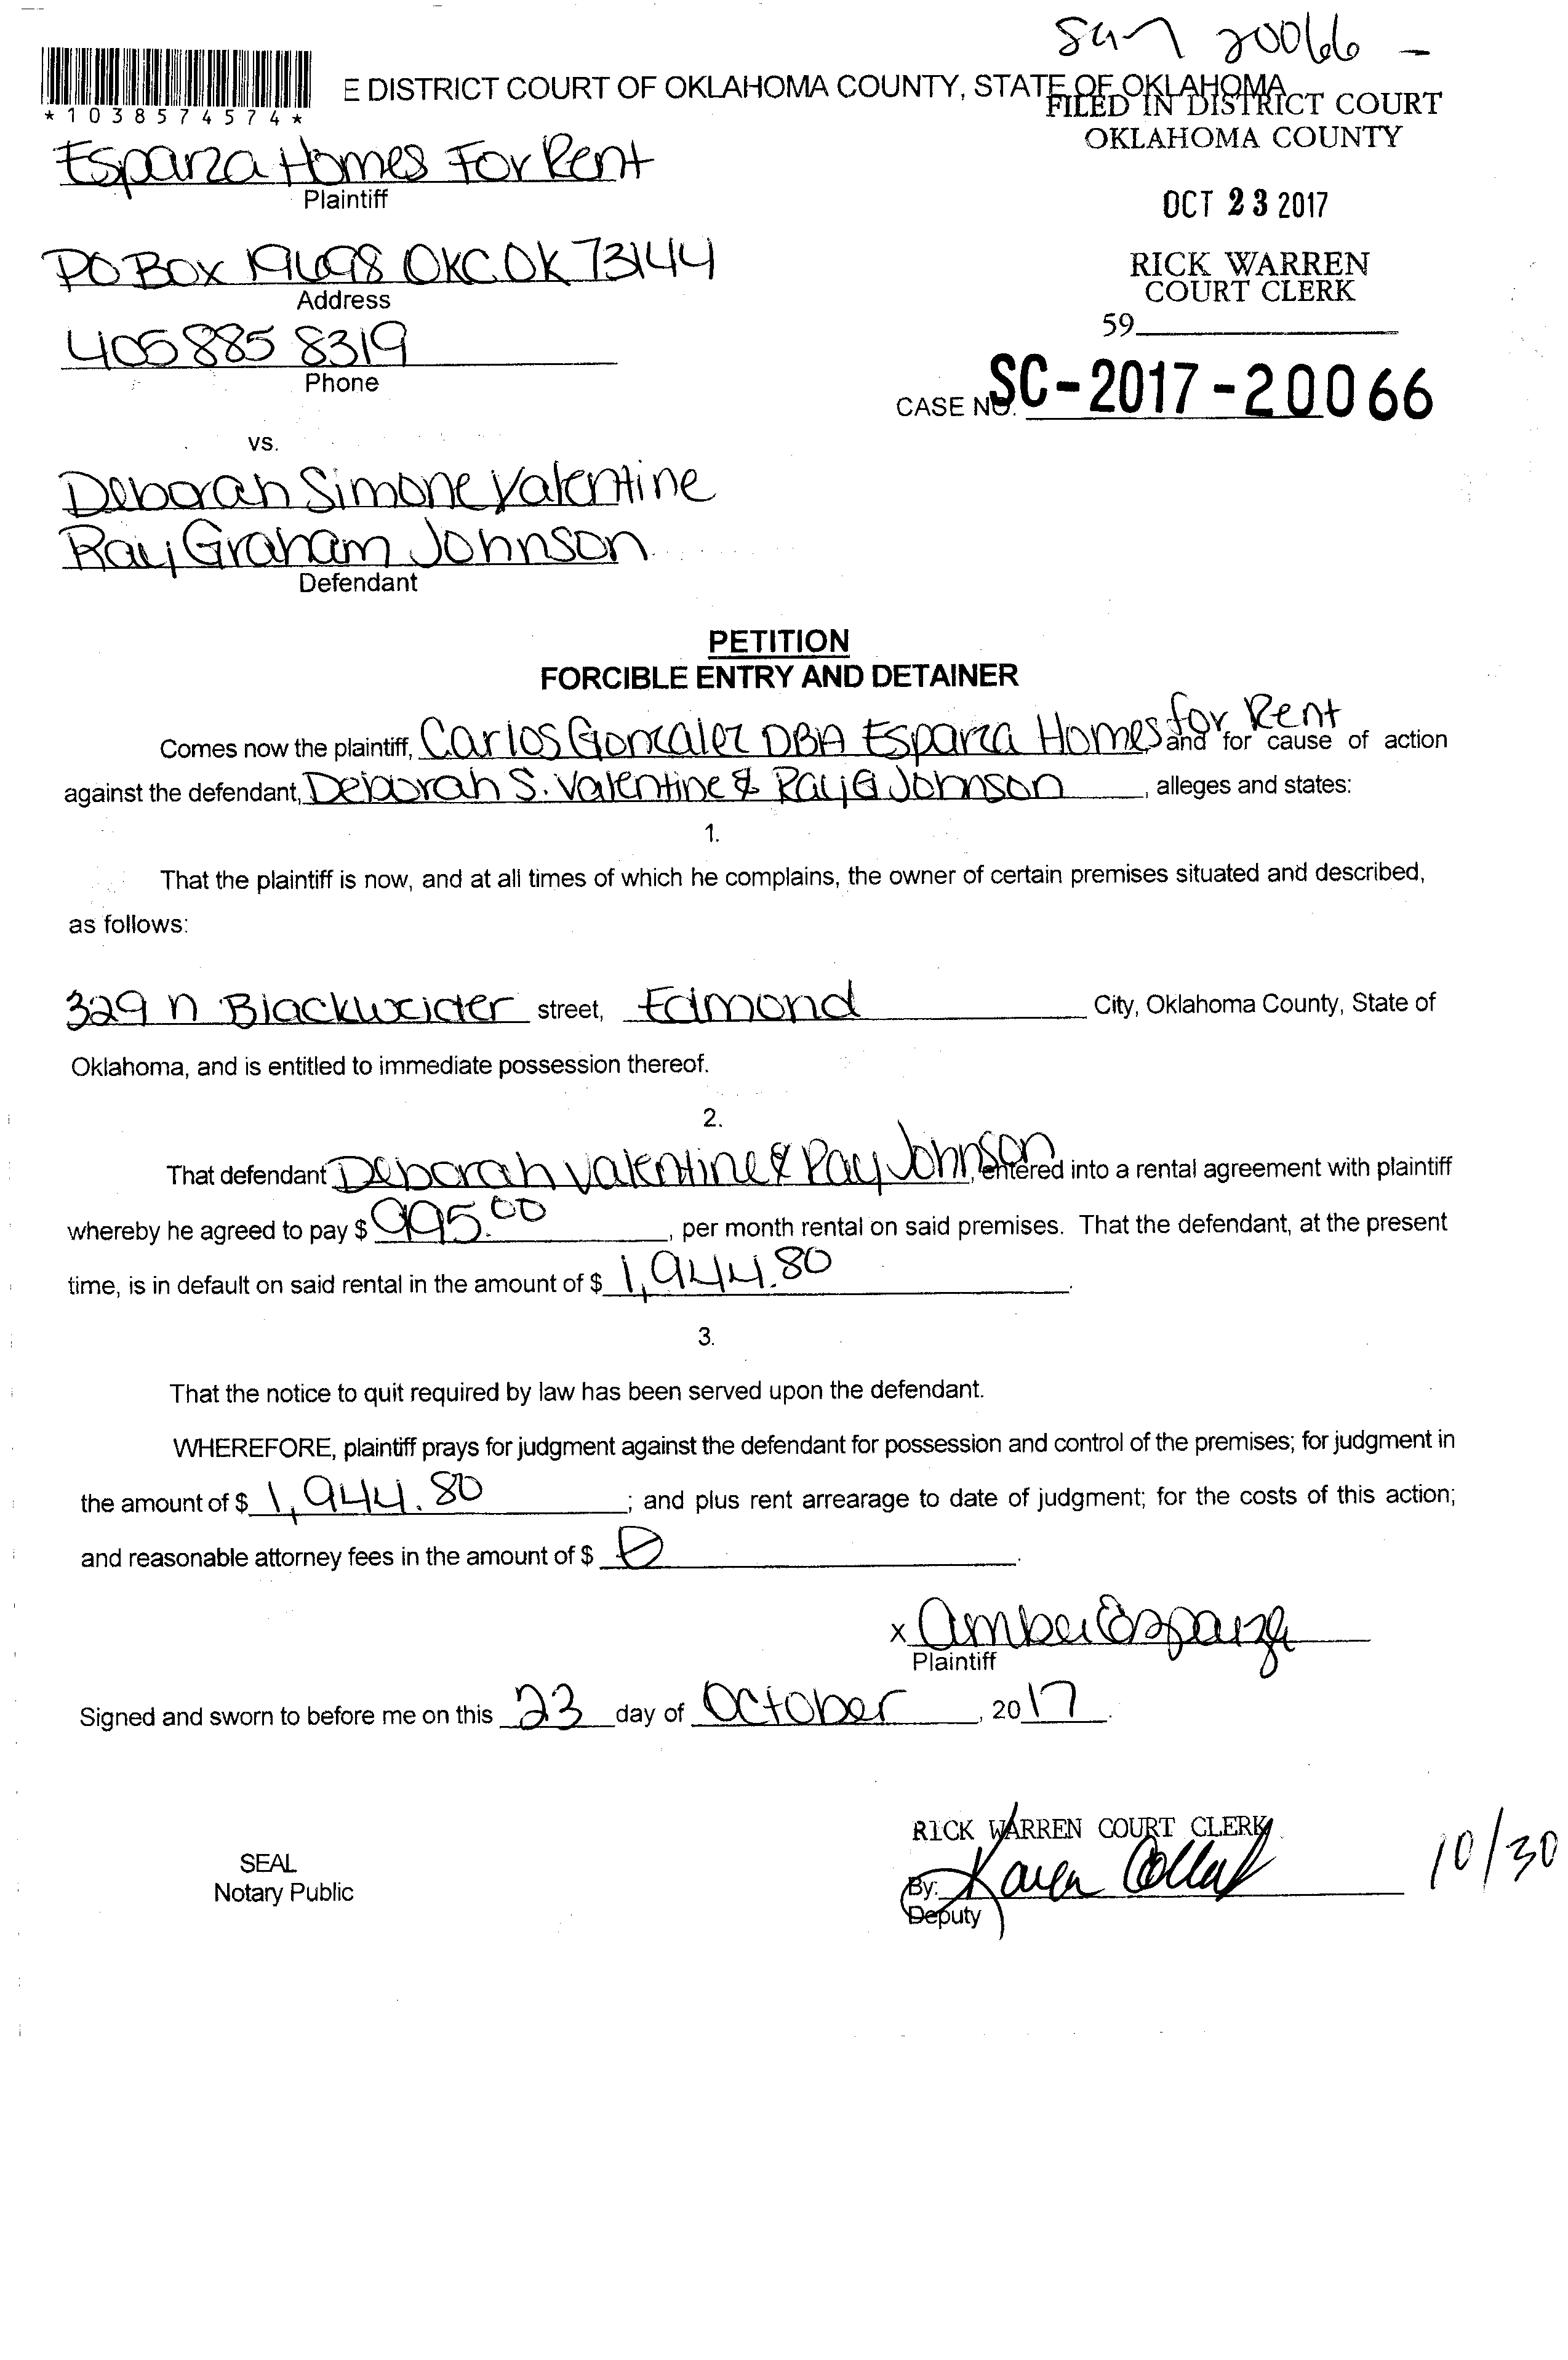 20066 -
*1038574574*
E DISTRICT COURT OF OKLAHOMA COUNTY, STATE OF OKLAHOMA
FILED IN DISTRICT COURT
OKLAHOMA COUNTY
Esparza Homes For Rent
Plaintiff
OCT 23 2017
PO Box 19698 OKC OK 73144
Address
RICK WARREN
COURT CLERK
59
405 885 8319
Phone
CASE NO. SC-2017-20066
vs.
Deborah Simone Valentine
Ray Graham Johnson
Defendant
PETITION
FORCIBLE ENTRY AND DETAINER
Comes now the plaintiff, Carlos Gonzalez DBA Esparza Homes for Rent and for cause of action
against the defendant, Deborah S. Valentine & Ray G Johnson, alleges and states:
1.
That the plaintiff is now, and at all times of which he complains, the owner of certain premises situated and described,
as follows:
329 N Blackwelder street, Edmond City, Oklahoma County, State of
Oklahoma, and is entitled to immediate possession thereof.
2.
That defendant Deborah Valentine & Ray Johnson, entered into a rental agreement with plaintiff
whereby he agreed to pay $ 995.00, per month rental on said premises. That the defendant, at the present
time, is in default on said rental in the amount of $ 1,944.80.
3.
That the notice to quit required by law has been served upon the defendant.
WHEREFORE, plaintiff prays for judgment against the defendant for possession and control of the premises; for judgment in
the amount of $ 1,944.80; and plus rent arrearage to date of judgment; for the costs of this action;
and reasonable attorney fees in the amount of $ 0.
x Amber Esparza
Plaintiff
Signed and sworn to before me on this 23 day of October, 2017.
RICK WARREN COURT CLERK
SEAL
Notary Public
By: Karen
Deputy
10/30